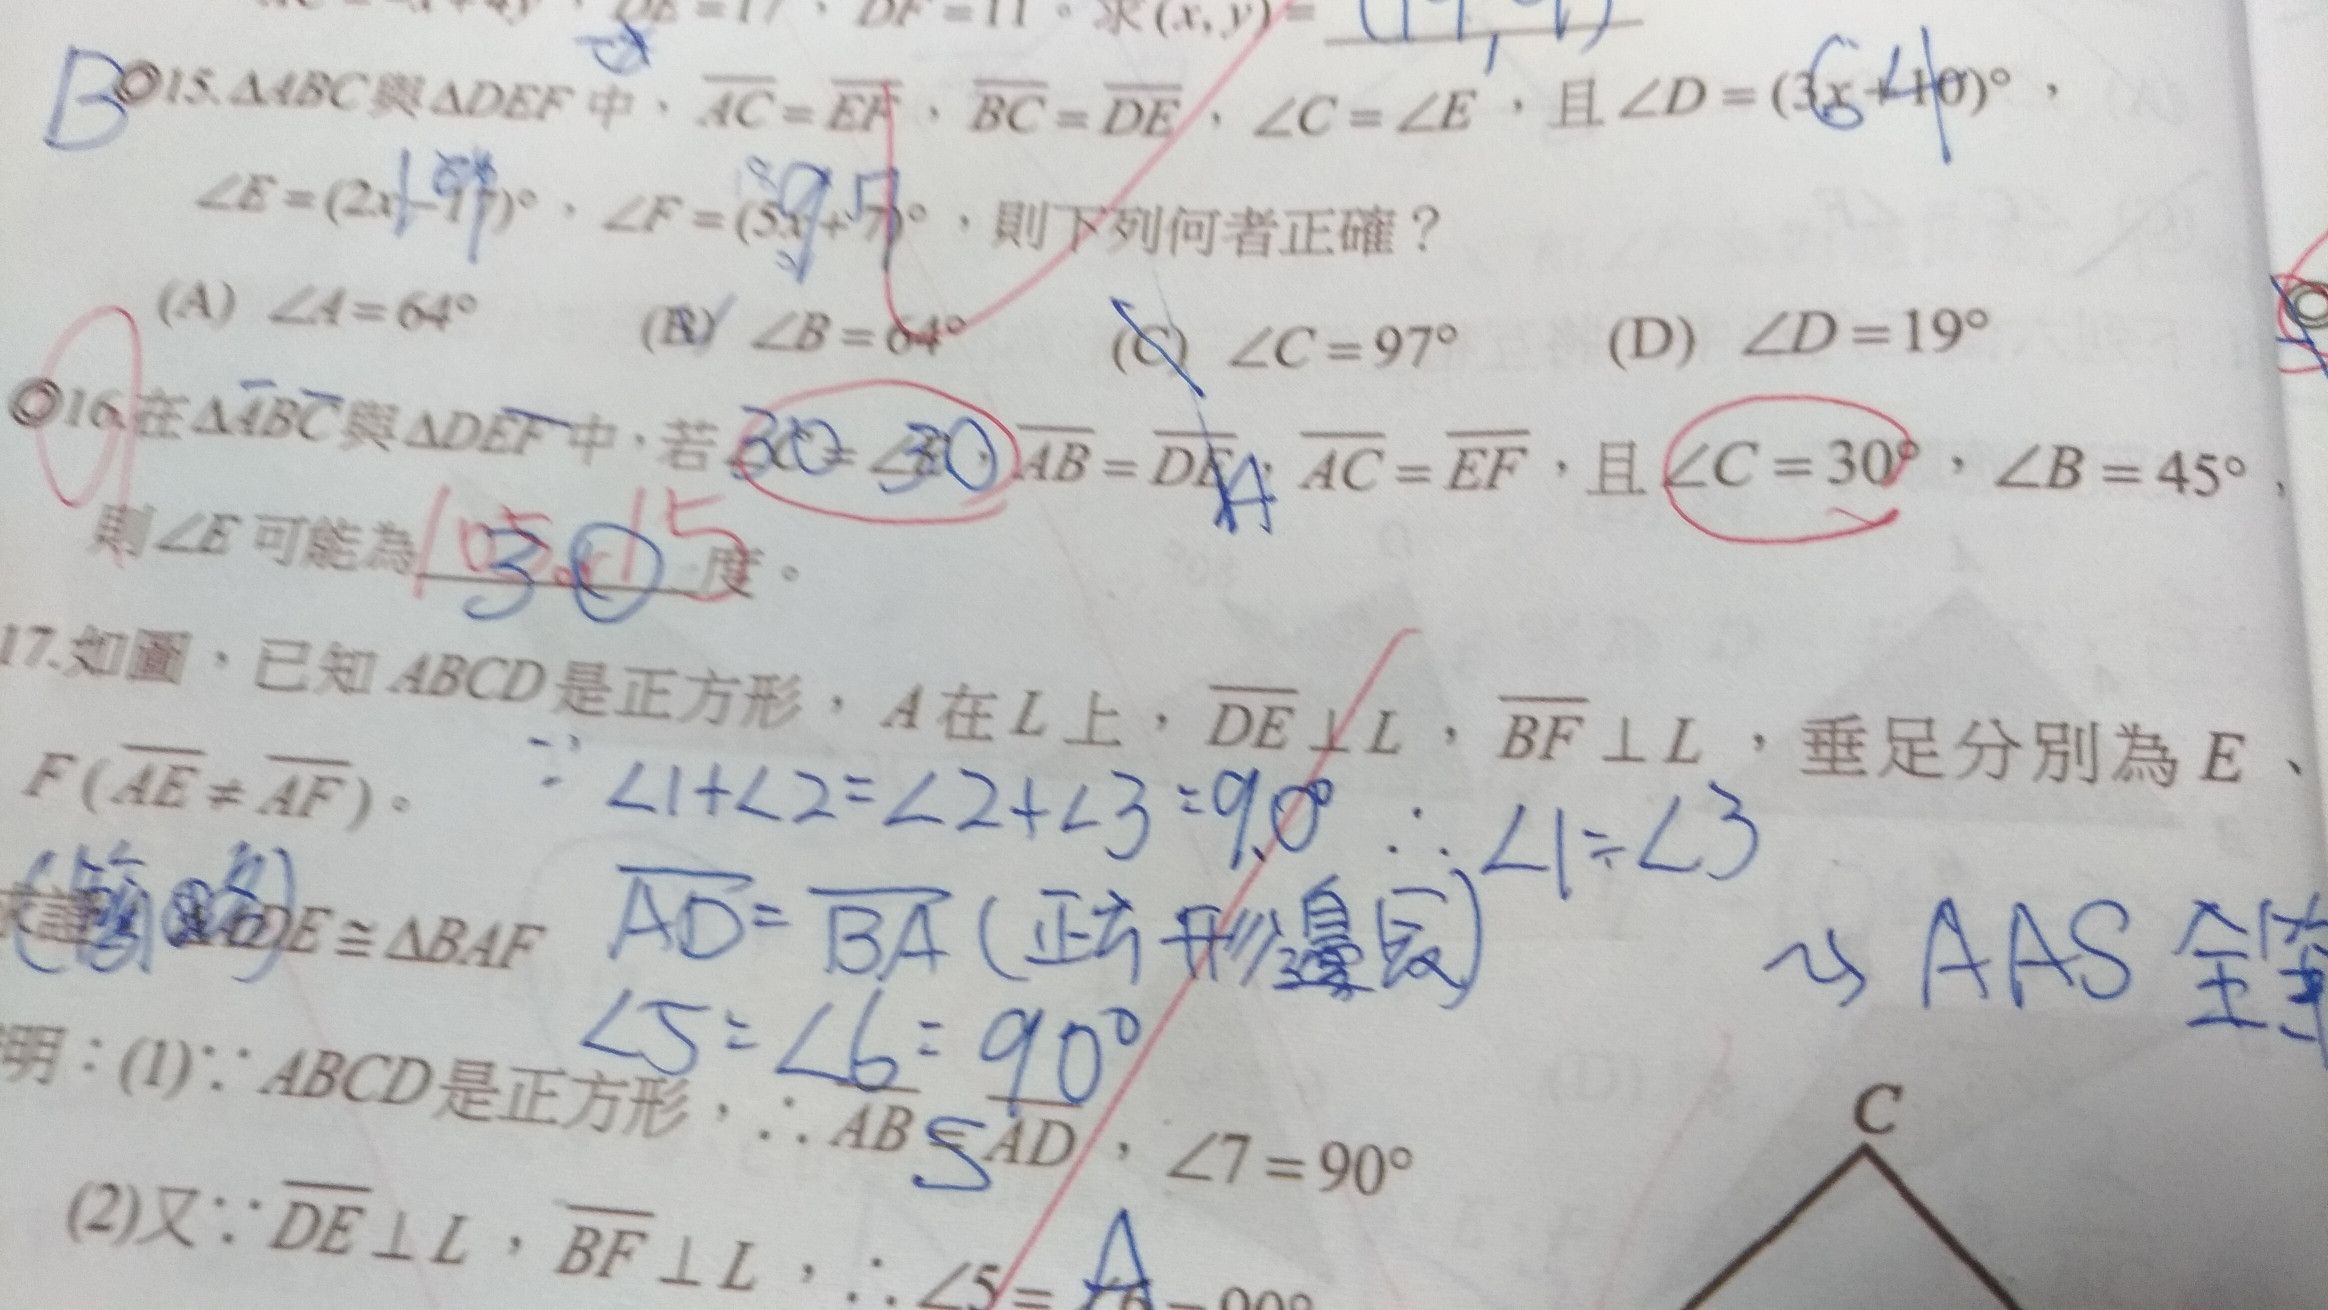 DE=17，DF=11。求(x, y)=
B ◎15.ΔABC與ΔDEF中，AC=EF，BC=DE，∠C=∠E，且∠D=(3x+10)°， 64
∠E=(2x-17)°，∠F=(5x+7)°，則下列何者正確？ 97
(A) ∠A=64° (B) ∠B=64° (C) ∠C=97° (D) ∠D=19°
◎16.在ΔABC與ΔDEF中，若 30 30 AB=DE，AC=EF，且∠C=30°，∠B=45°，
A
則∠E可能為 105 15 30 度。
17.如圖，已知ABCD是正方形，A在L上，DE⊥L，BF⊥L，垂足分別為E、
F(AE≠AF)。
∵ ∠1+∠2=∠2+∠3=90° ∴ ∠1=∠3
DE≅ΔBAF AD=BA(正方形邊長)
→ AAS 全等
∠5=∠6=90°
明：(1)∵ABCD是正方形，∴AB=AD，∠7=90°
S
C
(2)又∵DE⊥L，BF⊥L，∴∠5=∠6=90°
A